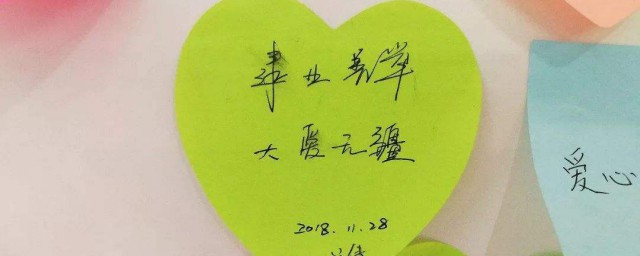 事业善举
大爱无疆
2018.11.28
爱心